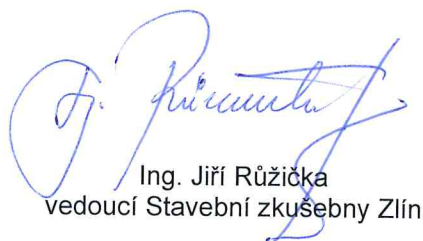 Ing. Jiří Růžička
vedoucí Stavební zkušebny Zlín